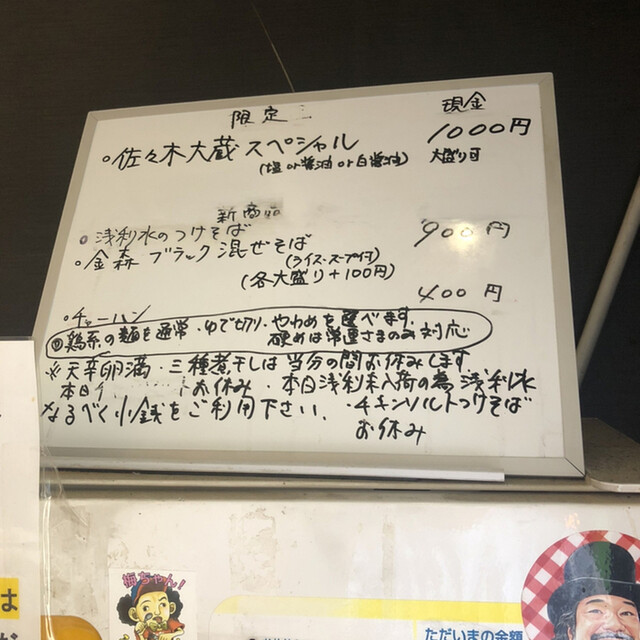 限定 現金
○佐々木大蔵スペシャル 1000円
(塩or醤油or白醤油) 大盛り可
新商品
○浅利水のつけそば
・金森ブラック混ぜそば 900円
(ライス・スープ付)
(各大盛り+100円)
・チャーハン 400円
鶏系の麺を通常・ゆで切り・やわめを選べます。
硬めは常連さまのみ対応
※天辛卵満・三種煮干しは当分の間お休みします
本日 お休み・本日浅利未入荷の為浅利水
なるべく小銭をご利用下さい、・チキンソルトつけそば
お休み
梅ちゃん!
ただいまの金額
は